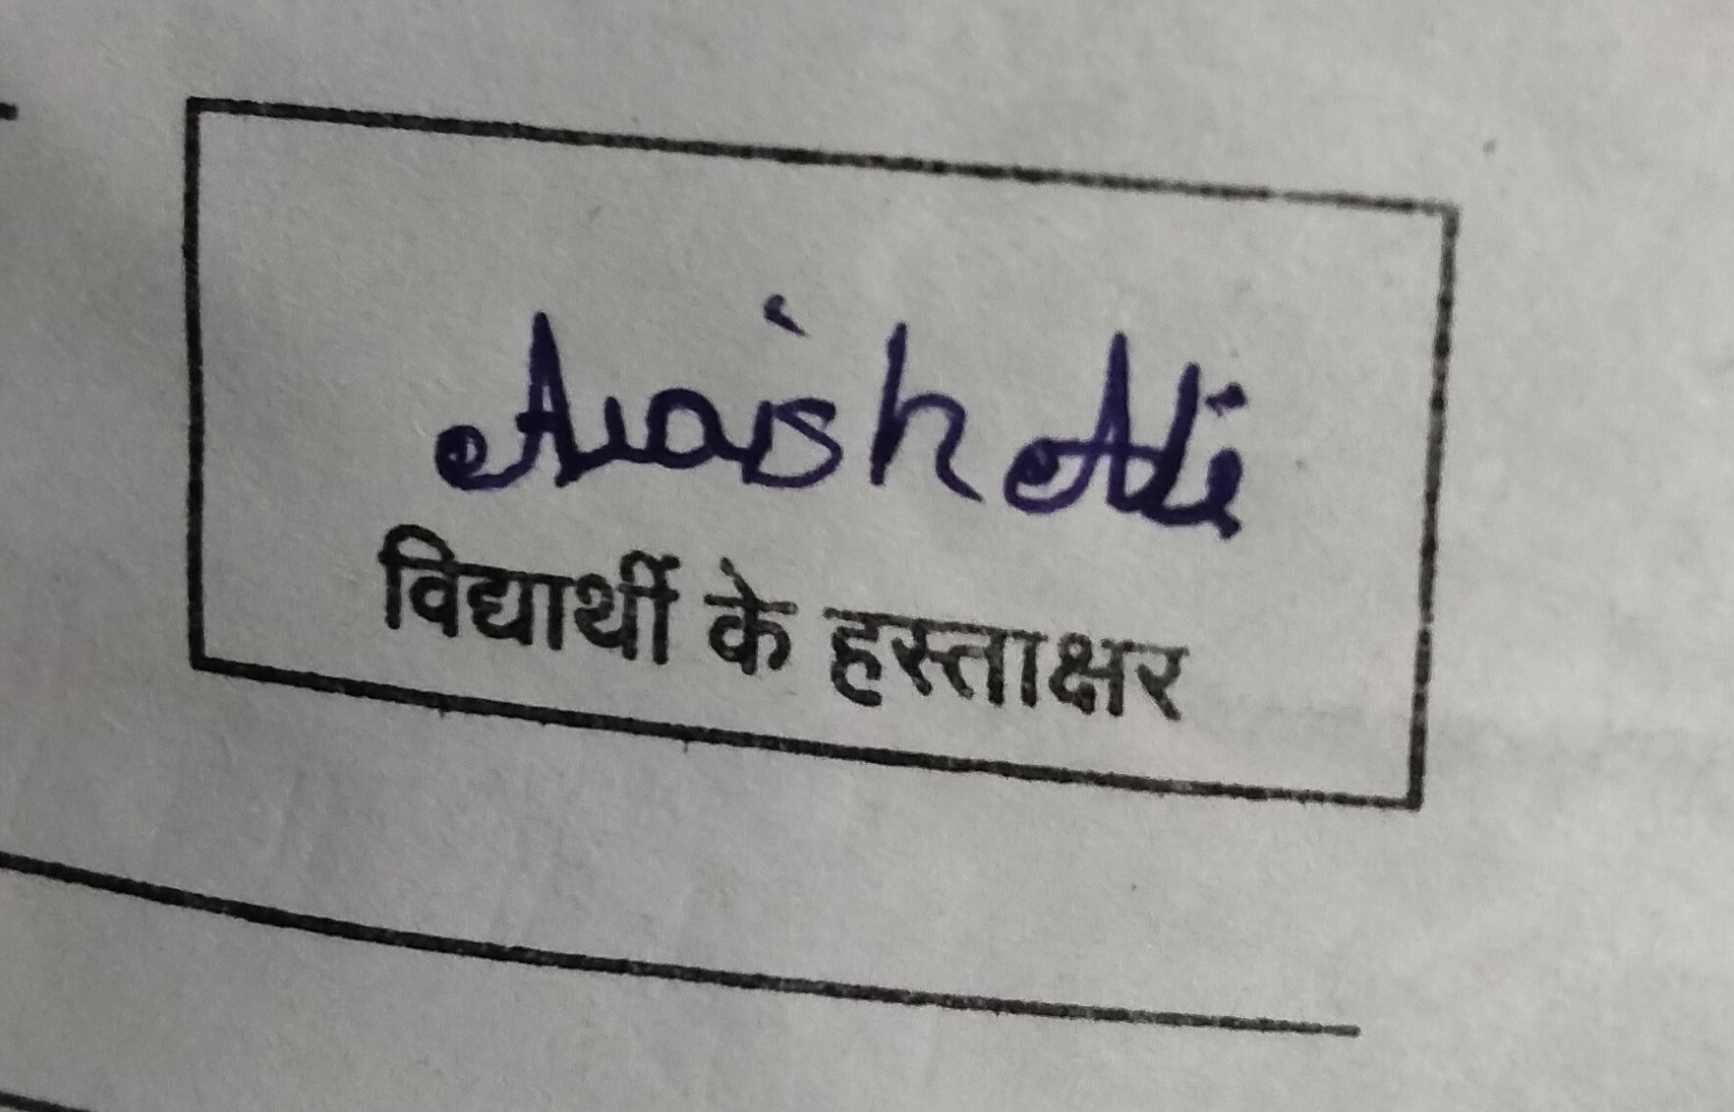 Araish Ali
विद्यार्थी के हस्ताक्षर